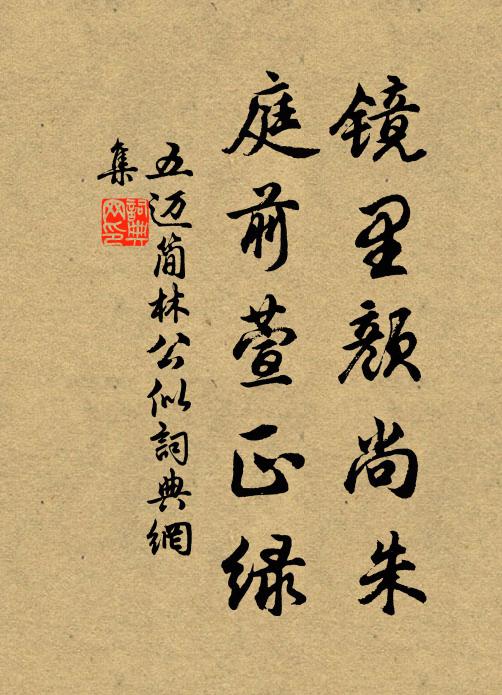 镜里颜尚朱
庭前萱正绿
五迈简林公似词典網
集
詞典
网印